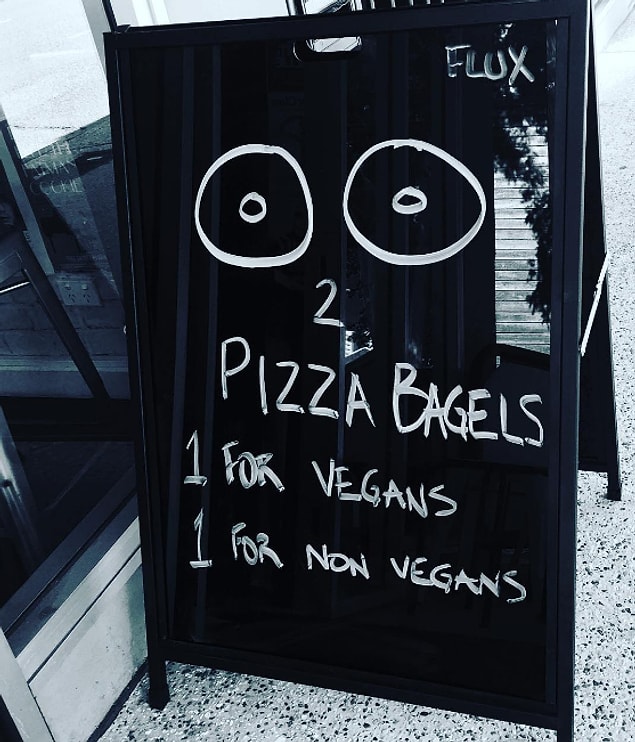 FLUX
2
PIZZA BAGELS
1 FOR VEGANS
1 FOR NON VEGANS